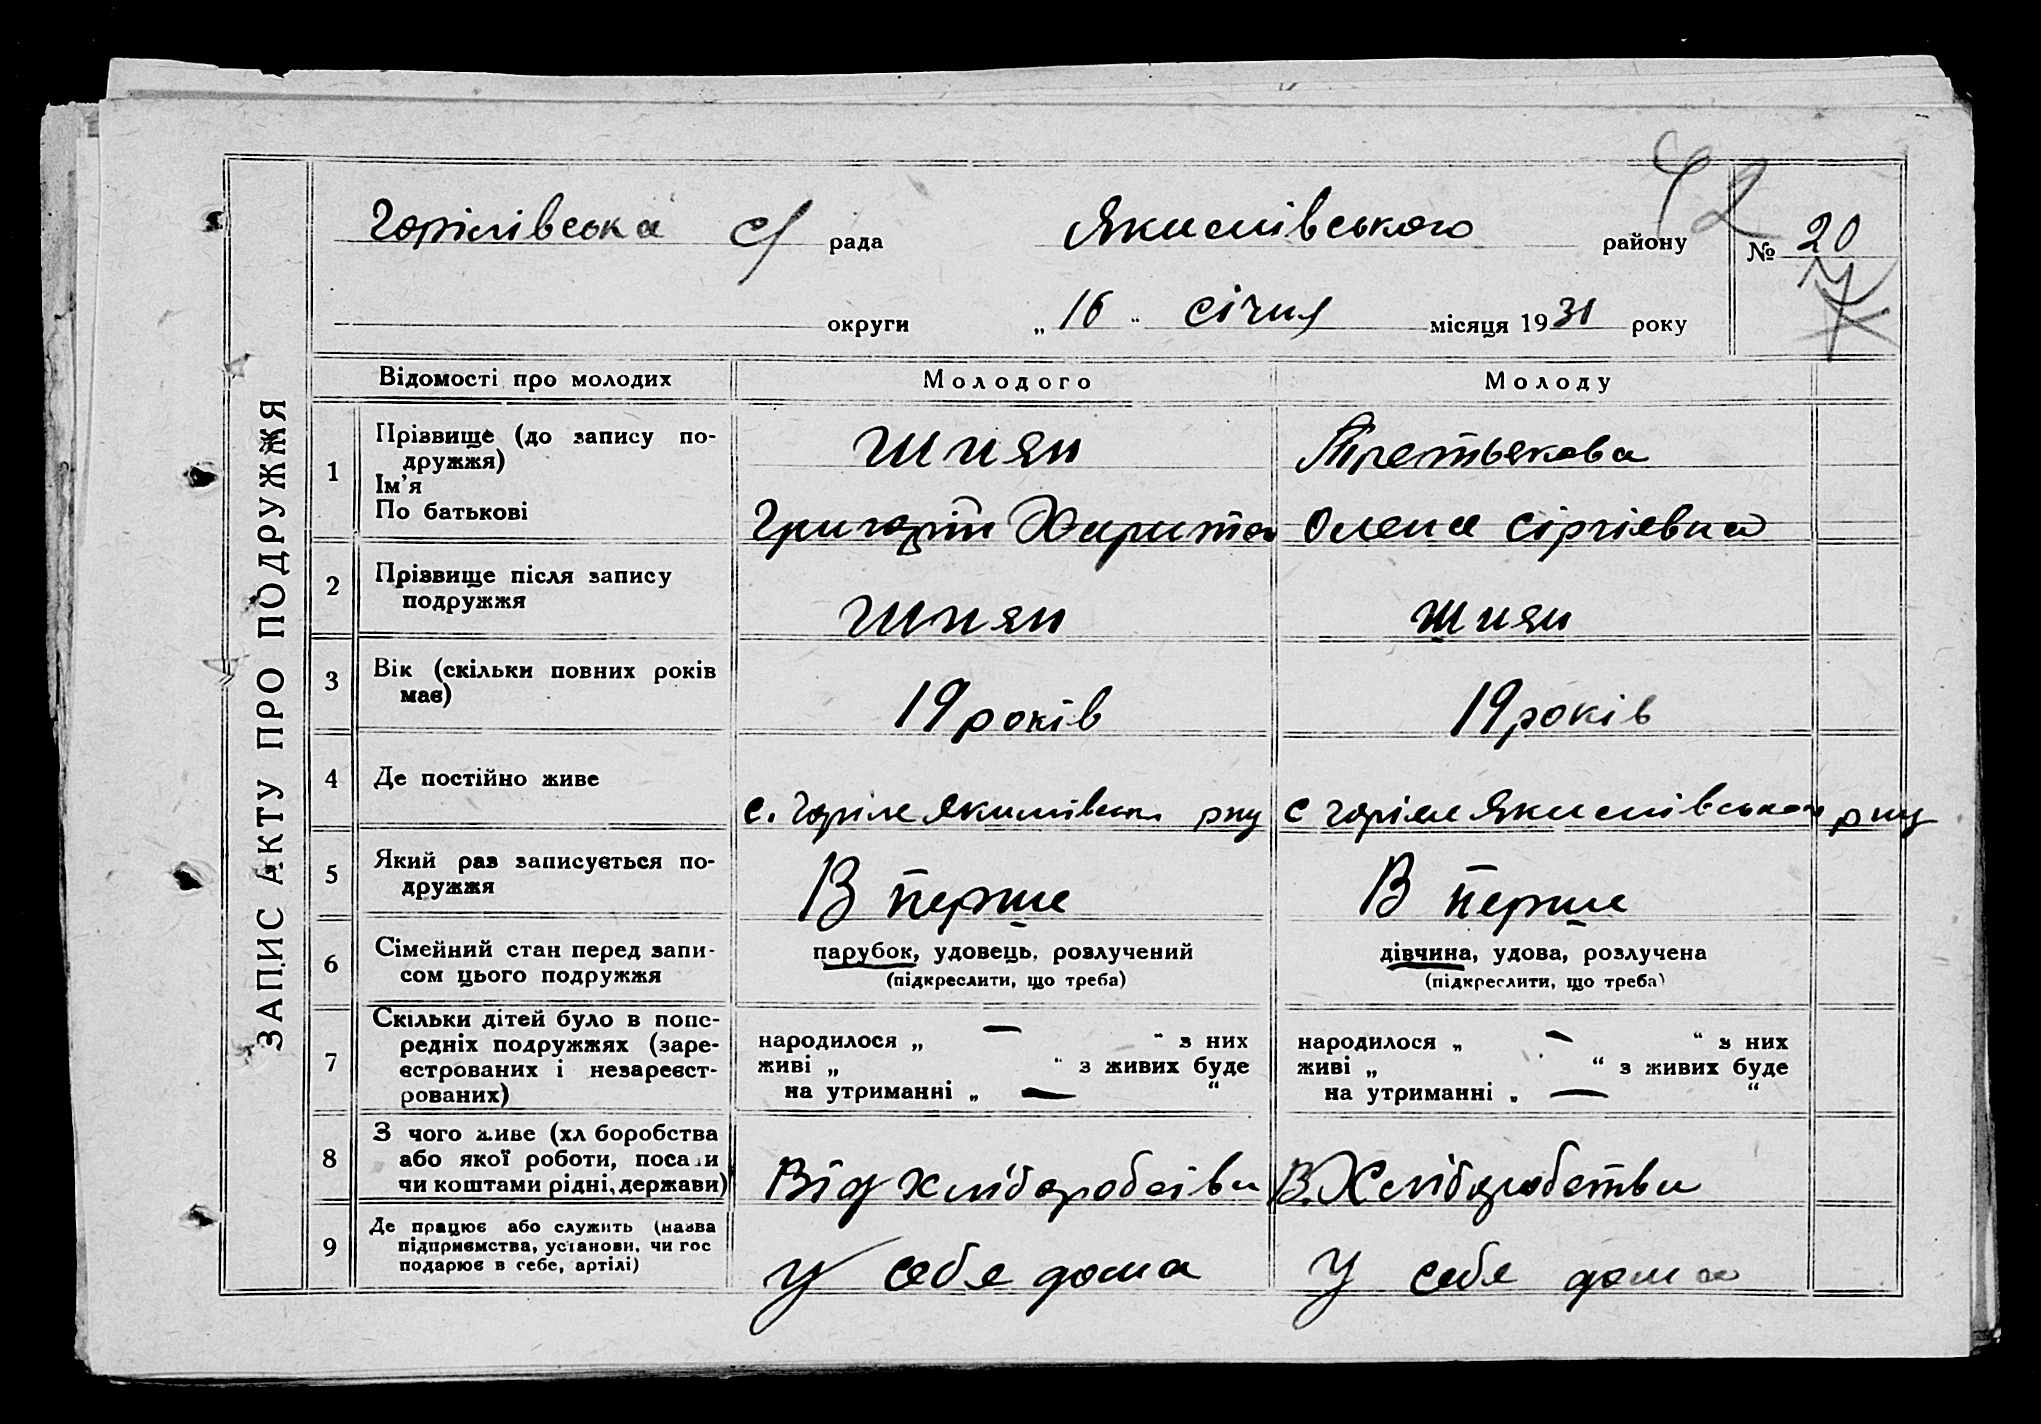 42
Горілівська с/ рада Якимівського району № 20
округи „ 16 “ січня місяця 1931 року
ЗАПИС АКТУ ПРО ПОДРУЖЖЯ
Відомості про молодих Молодого Молоду
1 Прізвище (до запису по-
дружжя)
Ім'я
По батькові
Шиян Третьякова
Григорій Харито Олена Сіргіевна
2 Прізвище після запису
подружжя
Шиян Шиян
3 Вік (скільки повних років
має)
19 років 19 років
4 Де постійно живе
с. Горіле Якимівськ рну с Горіле Якимівського рну
5 Який раз записується по-
дружжя
В перше В перше
6 Сімейний стан перед запи-
сом цього подружжя
парубок, удовець, розлучений дівчина, удова, розлучена
(підкреслити, що треба) (підкреслити, що треба)
7 Скільки дітей було в попе-
редніх подружжях (заре-
єстрованих і незареєст-
рованих)
народилося „ — “ з них народилося „ — “ з них
живі „ “ з живих буде живі „ “ з живих буде
на утриманні „ — “ на утриманні „ — “
8 З чого живе (хл боробства
або якої роботи, посади
чи коштами рідні, держави)
Від хліборобсіва В. Хліборобства
9 Де працює або служить (назва
підприємства, установи, чи гос
подарює в себе, артілі)
У себе дома У себе дома